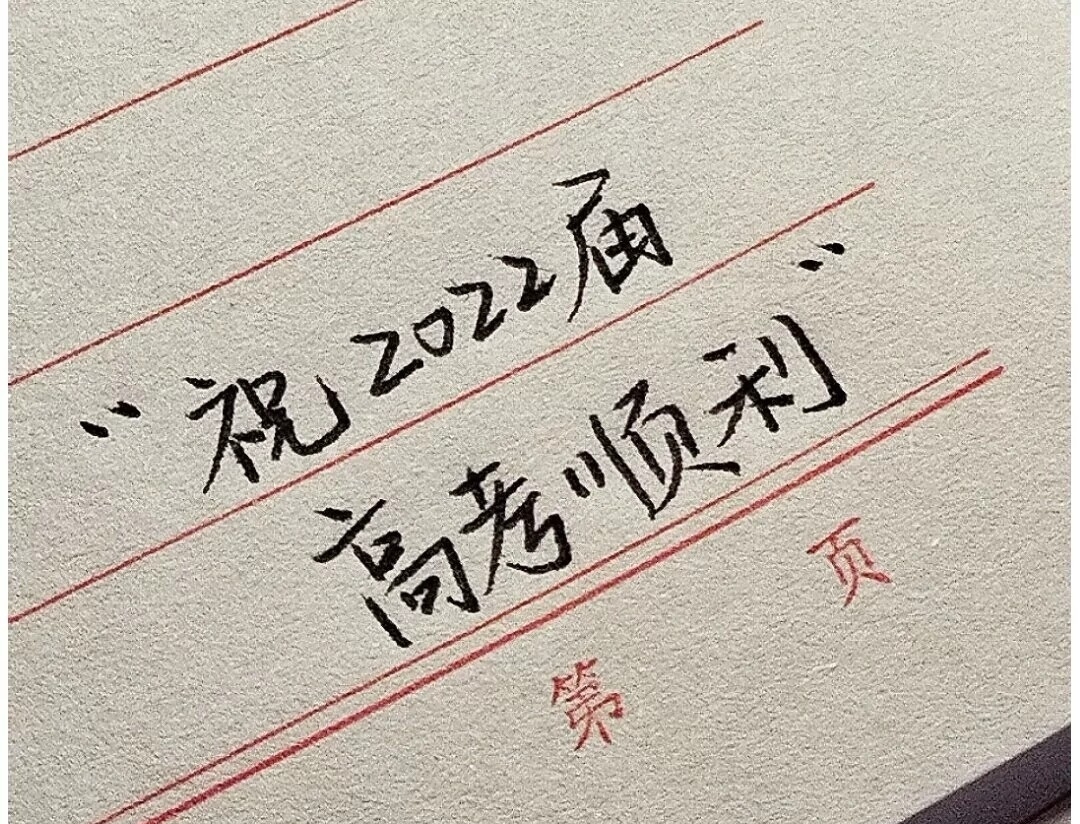 “祝2022届
高考顺利”
第 页